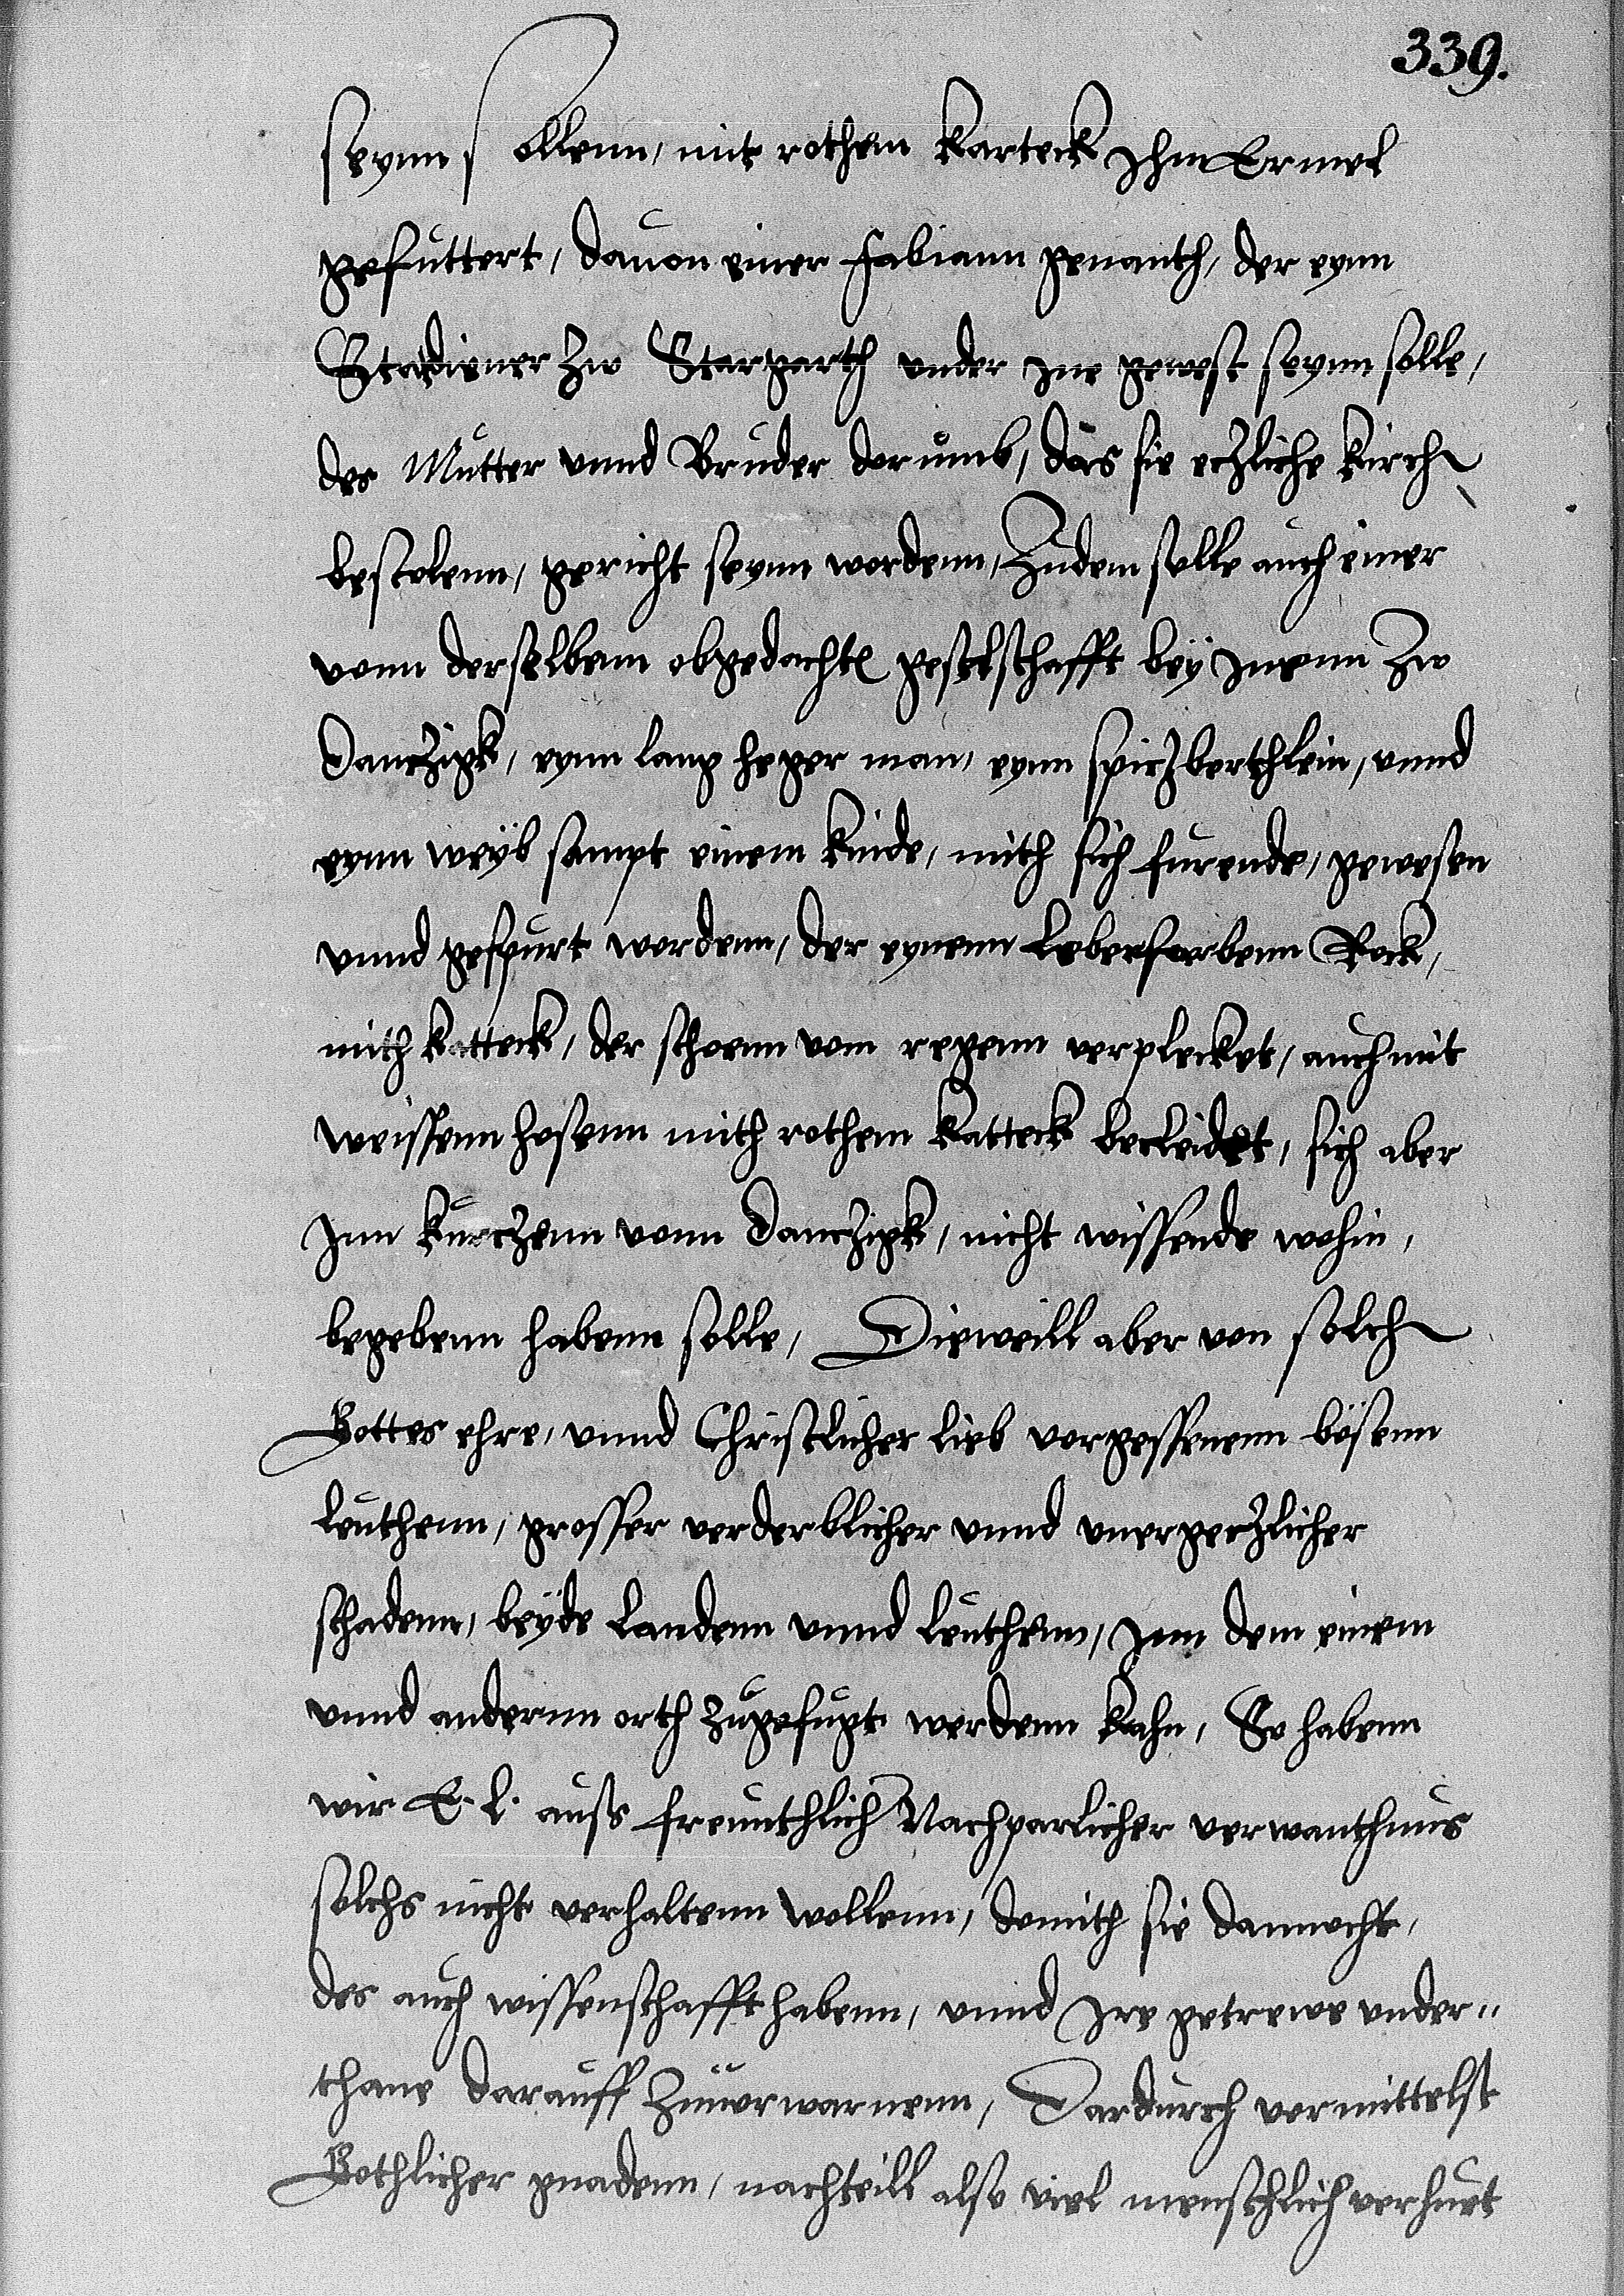 339.
seynn sollenn, mit rothem karteck Jhm Ermel
gefuttert, dauon einer Fabiann genanth, der eynn
Stadiener zw Stargarth vnder Jne gewest seynn solle,
des Mutter vnnd Bruder dorumb, das sie eczliche kirchen
bestolenn, gericht seynn wordenn, Zudem solle auch einer
vonn derselbenn obgedachten geselschafft bey Jnenn zw
Danczigk, eynn lang heger man, eynn spiczberthlein, vnnd
eynn weyb sampt einem kinde, mith sich furende, gewesen
vnnd gespurt wordenn, der eynenn leberfarbenn Rock,
mith katteck, der schonn vom regenn verplecket, auch mit
weissenn hosenn mith rothem katteck becleidet, sich aber
Jnn kurczenn vonn Danczigk, nicht wissende wohin,
begebenn habenn solle, Dieweill aber von solchen
Gottes ehre, vnnd Christlicher lieb vorgessenenn bösenn
leuthenn, grosser verderblicher vnnd vnergeczlicher
schadenn, beyde landenn vnnd leuthenn, Jnn dem einem
vnnd anderm orth zugefugt werdenn kahn, So habenn
wir E. L. auss freunthlich Nachparlicher verwanthnus
solchs nicht verhaltenn wollenn, domith sie dannocht,
des auch wissenschafft habenn, vnnd Jre getrewe vnder"
thane darauff zuuorwarnenn, Dardurch vormittelst
Gothlicher gnadenn, nachteill also viel menschlich verhuet